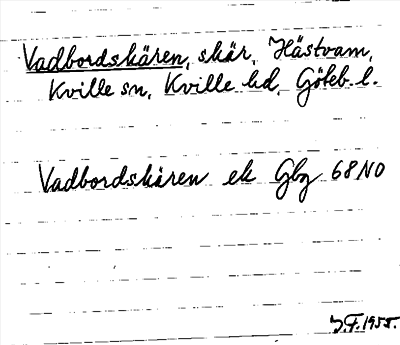 Vadbordskären, skär, Hästvam,
Kville sn, Kville hd, Göteb. l.
Vadbordskären ek Gbg 68 NO
J.F. 1955.